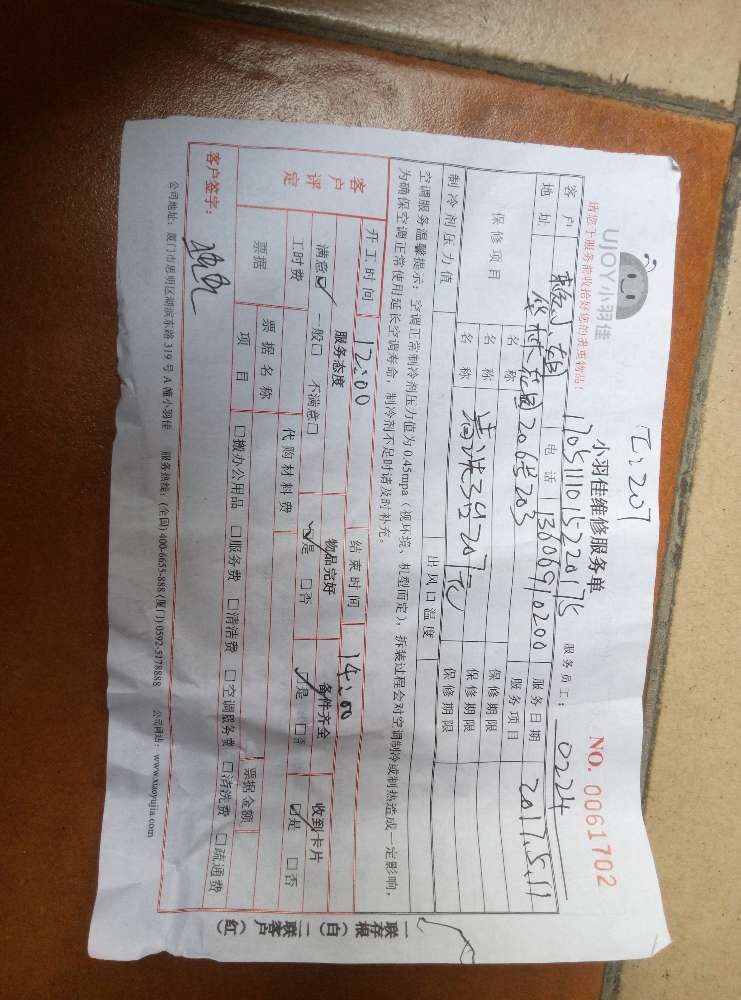 乙:207
UJOY小羽佳
小羽佳维修服务单
NO. 0061702
170511101522017S
请您于服务前收拾好您的贵重物品!
服务员工: 0224
客户
电话 13606910200
服务日期 2017.5.11
地址 206号203
服务项目
保修项目
名称
保修期限
名称
保修期限
名称
保修期限
制冷剂压力值
出风口温度
空调服务温馨提示: 空调正常制冷剂压力值为0.45mpa(视环境、机型而定),拆装过程会对空调制冷或制热造成一定影响,
为确保空调正常使用延长空调寿命,制冷剂不足时请及时补充。
开工时间 12:00
结束时间 14:00
客户评定
服务态度
物品完好
备件齐全
收到卡片
满意☑ 一般□ 不满意□
☑是 □否
☑是 □否
☑是 □否
工时费
代购材料费
票据
票据名称
票据金额
项目
□搬办公用品 □服务费 □清洁费 □空调服务费 □清洗费 □疏通费
客户签字:
公司地址: 厦门市思明区湖滨东路319号A幢小羽佳 服务热线: (全国) 400-6655-888 (厦门) 0592-5178888 公司网站: www.xiaoyujia.com
一联存根(白) 二联客户(红)